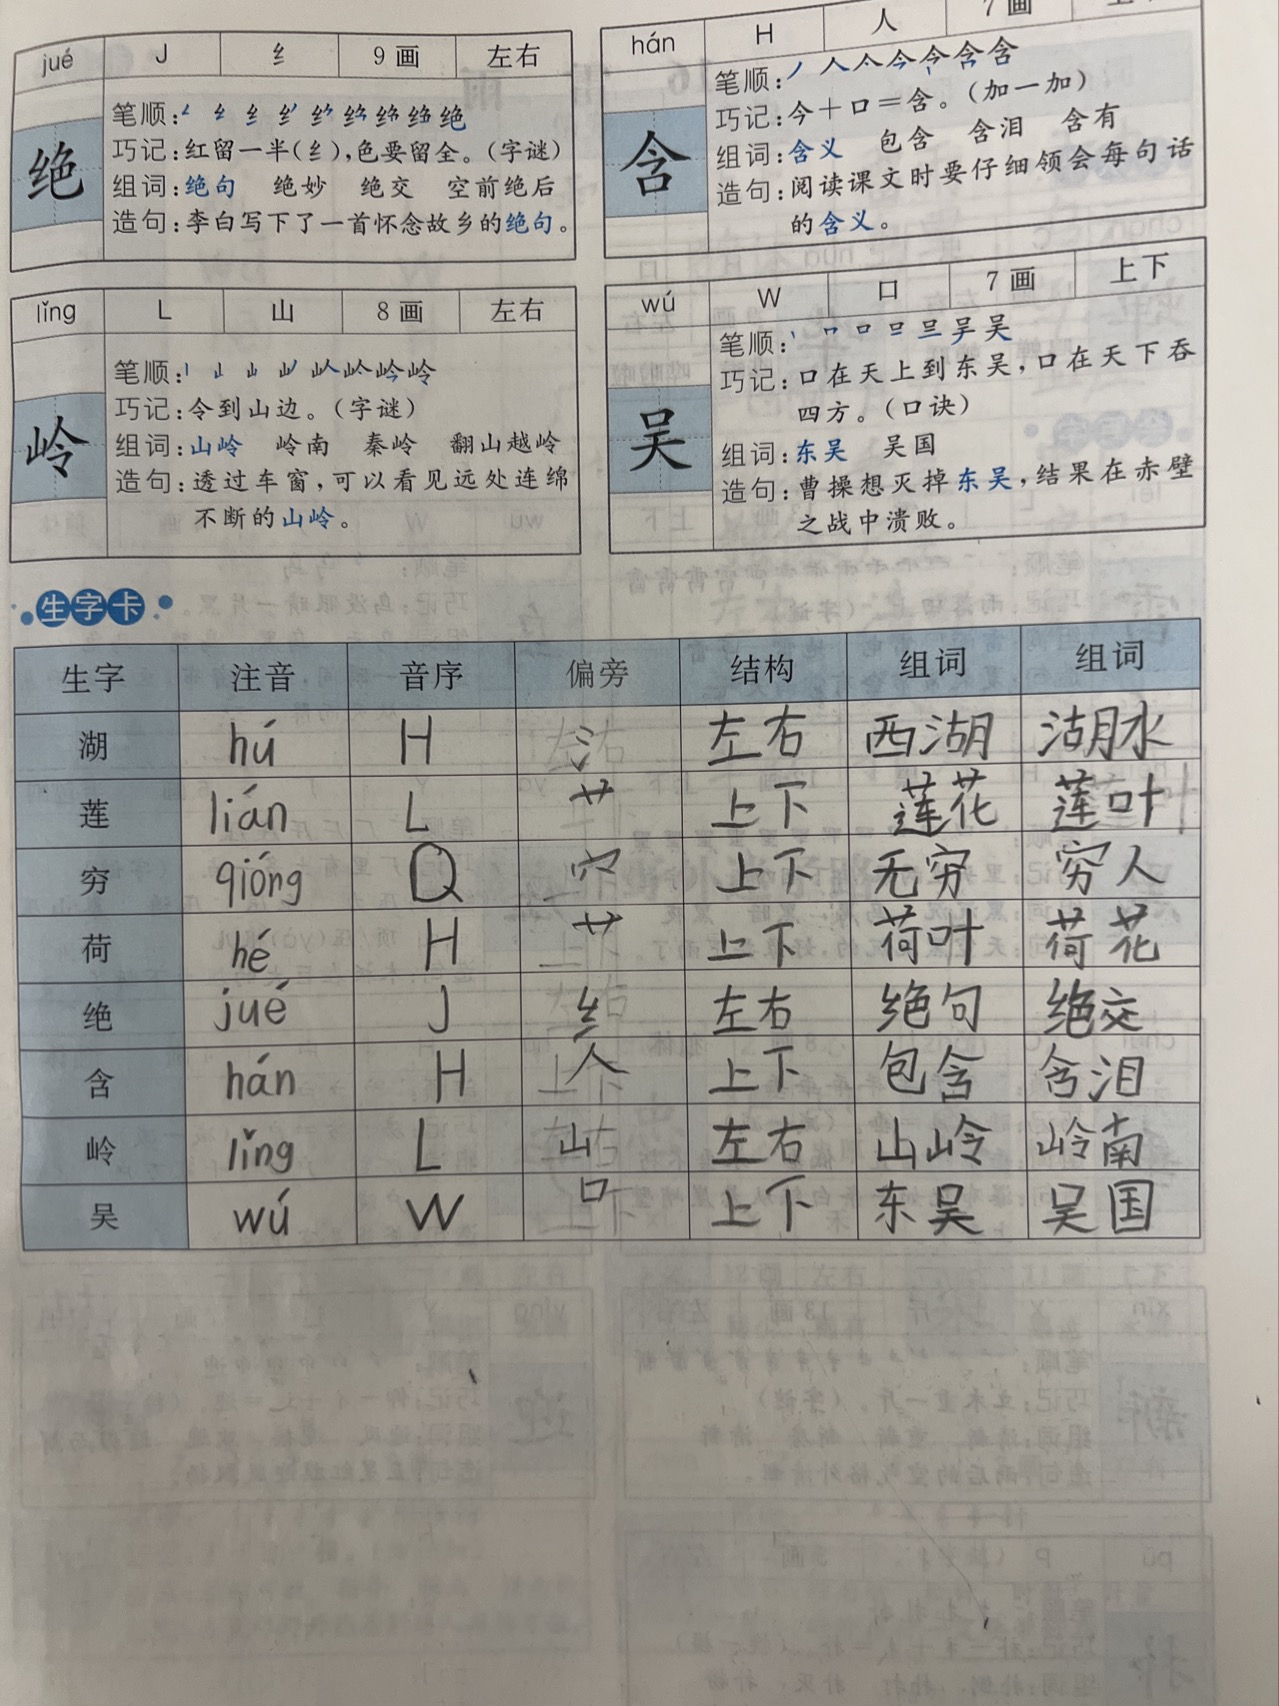 jué J 纟 9画 左右
绝
笔顺:
巧记:红留一半(纟),色要留全。(字谜)
组词:绝句 绝妙 绝交 空前绝后
造句:李白写下了一首怀念故乡的绝句。
hán H 人 7画
含
笔顺:
巧记:今+口=含。(加一加)
组词:含义 包含 含泪 含有
造句:阅读课文时要仔细领会每句话
的含义。
lǐng L 山 8画 左右
岭
笔顺:
巧记:令到山边。(字谜)
组词:山岭 岭南 秦岭 翻山越岭
造句:透过车窗,可以看见远处连绵
不断的山岭。
wú W 口 7画 上下
吴
笔顺:
巧记:口在天上到东吴,口在天下吞
四方。(口诀)
组词:东吴 吴国
造句:曹操想灭掉东吴,结果在赤壁
之战中溃败。
生字卡
生字 注音 音序 偏旁 结构 组词 组词
湖 hú H 氵 左右 西湖 湖水
莲 lián L 艹 上下 莲花 莲叶
穷 qióng Q 穴 上下 无穷 穷人
荷 hé H 艹 上下 荷叶 荷花
绝 jué J 纟 左右 绝句 绝交
含 hán H 人 上下 包含 含泪
岭 lǐng L 山 左右 山岭 岭南
吴 wú W 口 上下 东吴 吴国